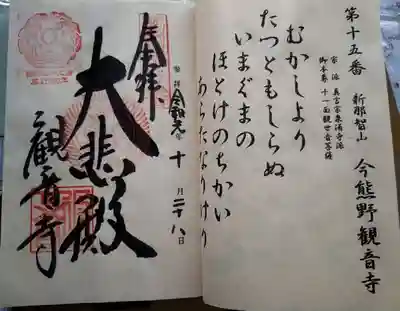 第十五番　新那智山　今熊野観音寺
宗派　真言宗泉涌寺派
御本尊　十一面観世音菩薩
むかしより
たつともしらぬ
いまぐまの
ほとけのちかい
あらたなりけり
奉拝
令和元年十月二十八日
大悲殿
観音寺